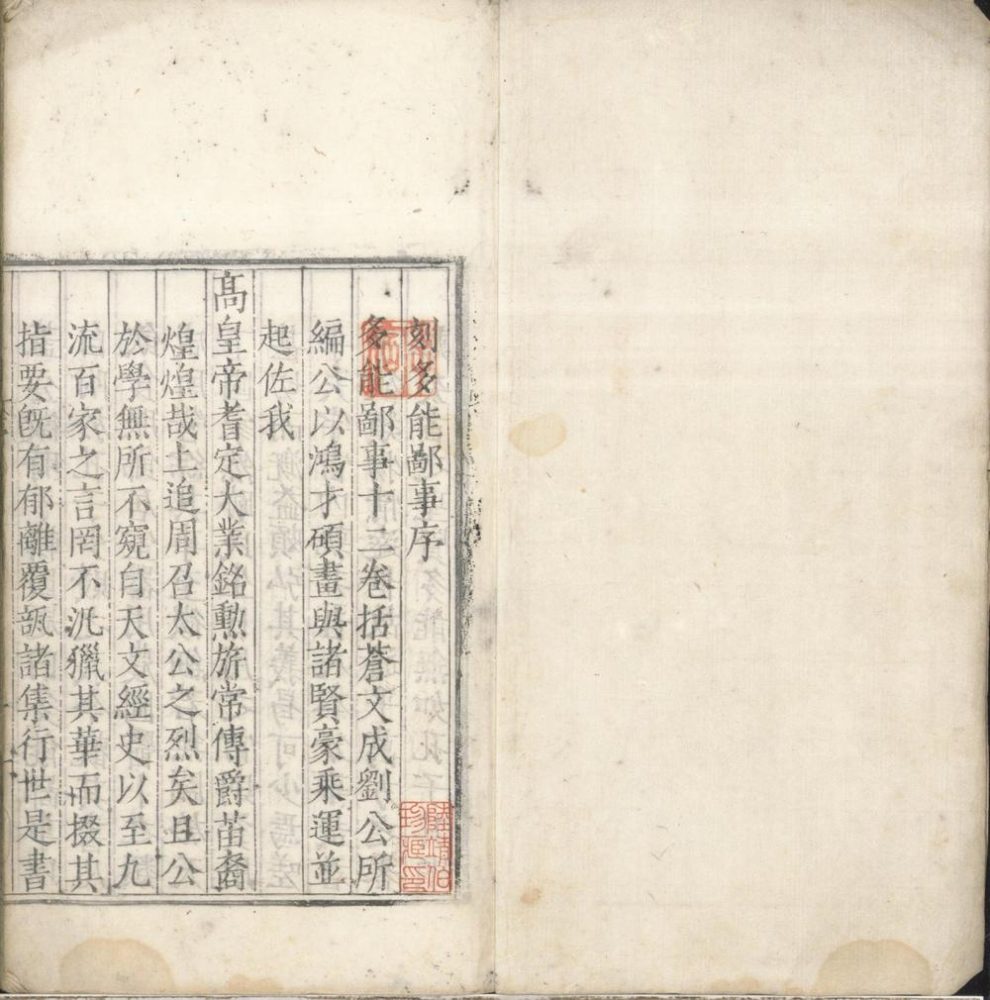 刻多能鄙事序
多能鄙事十二卷括蒼文成劉公所
編公以鴻才碩畫與諸賢豪乘運並
起佐我
高皇帝耆定大業銘勲旂常傳爵苗裔
煌煌哉上追周召太公之烈矣且公
於學無所不窺自天文經史以至九
流百家之言罔不汎獵其華而掇其
指要旣有郁離覆瓿諸集行世是書
陸靖伯
珍藏印